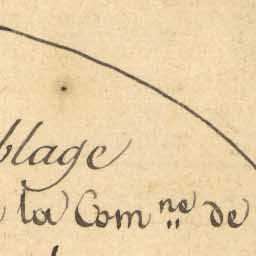 blage
la Com.ne de